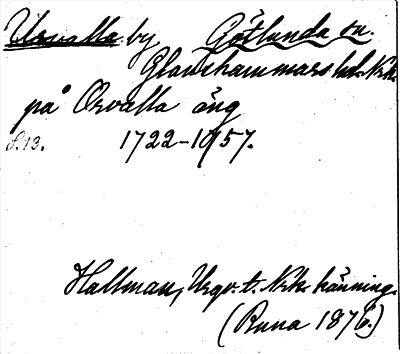 Urvalla by Götlunda sn.
Glanshammars hd. Nrk.
på Orvalla äng
S. 13. 1722–1957.
Hallman, Urgr. t. Nrks känning.
(Runa 1876.)